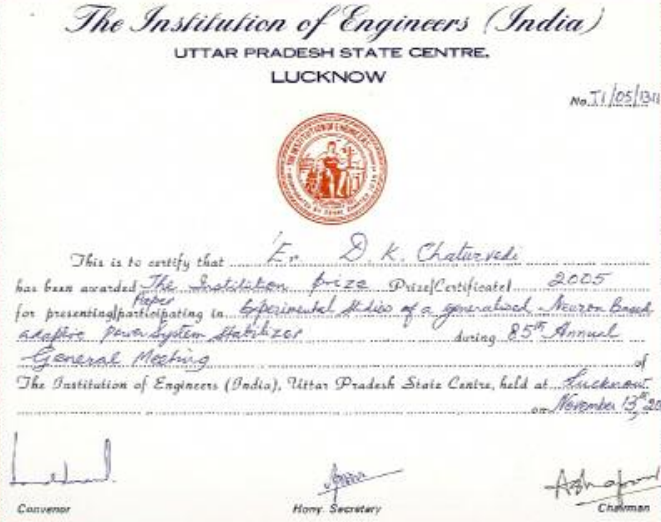 The Institution of Engineers (India)
UTTAR PRADESH STATE CENTRE,
LUCKNOW
No. T1/05/1311
THE INSTITUTION OF ENGINEERS
This is to certify that Er D. K. Chaturvedi
has been awarded The Institution prize Prize/Certificate 2005
Paper
for presenting/participating in Experimental Studies of a generalised Neuron Based
adaptive Power System Stabilizer during 85th Annual
General Meeting of
The Institution of Engineers (India), Uttar Pradesh State Centre, held at Lucknow
on November 13th, 20
Convenor Hony. Secretary Chairman